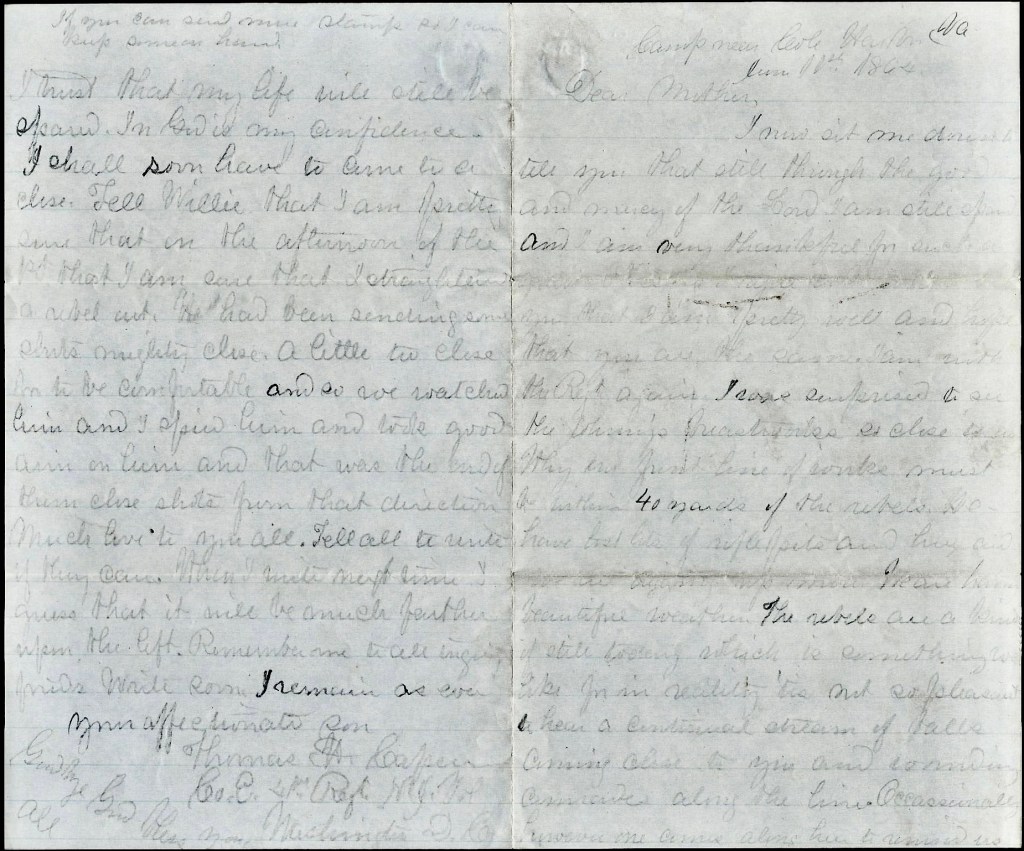 Camp near Cole Harbor Va
June 11th 1864
Dear Mother,
I now sit me down to
tell you that still through the good
and mercy of the Lord I am still spared
and I am very thankful for such
you that I am pretty well and hope
that you are the same. I am with
the Regt again. I was surprised to see
the Johnnys breastworks so close to us
Why our front line of works must
be within 40 yards of the rebels. We
have lost lots of rifle pits and they are
beautiful weather. The rebels are a kind
of still today which is something we
like for in reality 'tis not so pleasant
to hear a continual stream of balls
coming close to you and wounding
comrades along the line. Occassionally
however one comes along here to remind us
If you can send some stamps so I can
keep some on hand.
I trust that my life will still be
spared. In God is my confidence.
I shall soon have to come to a
close. Tell Willie that I am pretty
sure that on the afternoon of the
1st that I am sure that I straightened
a rebel out. He had been sending some
shots mighty close. A little too close
for to be comfortable and so we watched
him and I spied him and took good
aim on him and that was the end of
them close shots from that direction
Much love to you all. Tell all to write
if they can. When I write next time I
guess that it will be much farther
upon the left. Remember me to all inquiring
friends Write soon. I remain as ever
your affectionate son
Thomas W. Capen
Co. E. 4th Regt N.J. Vol
Washington D. C.
Good bye
God bless you
All